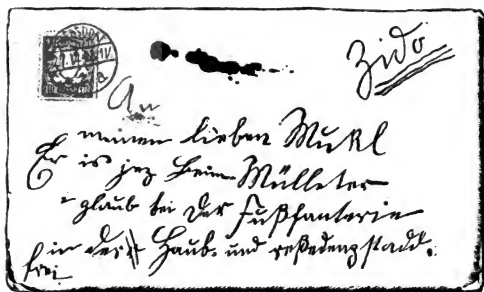 Zido
An
meinen lieben Mukl
Er is jez beim Mülleter
i glaub bei der Fußfanterie
in der Haub- und reßedenzstadd.
frei